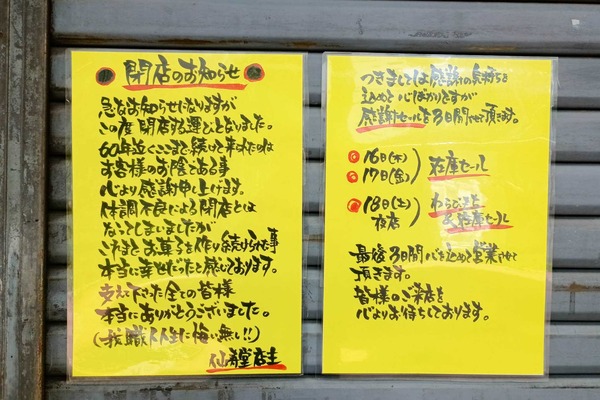 閉店のお知らせ
急なお知らせになりますが
この度閉店する運びとなりました。
60年近くここまで続けて来れたのは
お客様のお陰である事
心より感謝申し上げます。
体調不良による閉店とは
なってしまいましたが
これまでお菓子を作り続けられた事
本当に幸せだったと感じております。
支えて下さった全ての皆様
本当にありがとうございました。
(我職人人生に悔い無し!!)
店主
つきましては感謝の気持ちを
込めて心ばかりですが
感謝セールを3日間させて頂きます。
16日(木)
17日(金) 在庫セール
18日(土) わらびもち
夜店 &在庫セール
最後3日間心を込めて営業させて
頂きます。
皆様のご来店を
心よりお待ちしております。